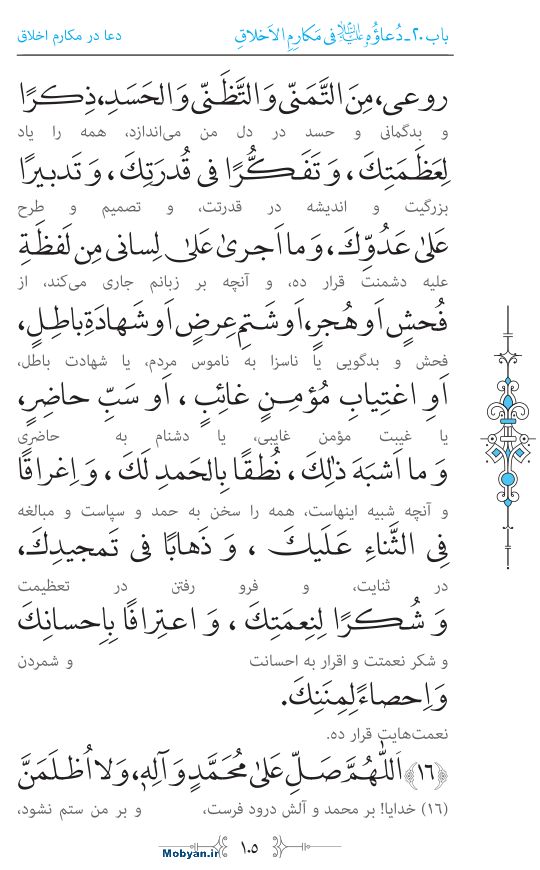 باب ۲۰-دُعاؤُهُ علیه‌السلام فی مَکارِمِ الاَخلاقِ
دعا در مکارم اخلاق
روعی، مِنَ التَّمَنّی وَ التَّظَنّی وَ الحَسَدِ، ذِکرًا
و بدگمانی و حسد در دل من می‌اندازد، همه را یاد
لِعَظَمَتِكَ، وَ تَفَکُّرًا فی قُدرَتِكَ، وَ تَدبیرًا
بزرگیت و اندیشه در قدرتت، و تصمیم و طرح
عَلیٰ عَدُوِّكَ، وَ ما اَجریٰ عَلیٰ لِسانی مِن لَفظَةِ
علیه دشمنت قرار ده، و آنچه بر زبانم جاری می‌کند، از
فُحشٍ اَو هُجرٍ، اَو شَتمِ عِرضٍ اَو شَهادَةِ باطِلٍ،
فحش و بدگویی یا ناسزا به ناموس مردم، یا شهادت باطل،
اَوِ اغتِیابِ مُؤمِنٍ غائِبٍ، اَو سَبِّ حاضِرٍ،
یا غیبت مؤمن غایبی، یا دشنام به حاضری
وَ ما اَشبَهَ ذٰلِكَ، نُطقًا بِالحَمدِ لَكَ، وَ اِغراقًا
و آنچه شبیه اینهاست، همه را سخن به حمد و سپاست و مبالغه
فِی الثَّناءِ عَلَیكَ، وَ ذَهابًا فی تَمجیدِكَ،
در ثنایت، و فرو رفتن در تعظیمت
وَ شُکرًا لِنِعمَتِكَ، وَ اعتِرافًا بِاِحسانِكَ
و شکر نعمتت و اقرار به احسانت و شمردن
وَ اِحصاءً لِمِنَنِكَ.
نعمت‌هایت قرار ده.
﴿۱۶﴾ اَللّٰهُمَّ صَلِّ عَلیٰ مُحَمَّدٍ وَ آلِهِ، وَ لا اُظلَمَنَّ
(۱۶) خدایا! بر محمد و آلش درود فرست، و بر من ستم نشود،
۱۰۵
Mobyan.ir